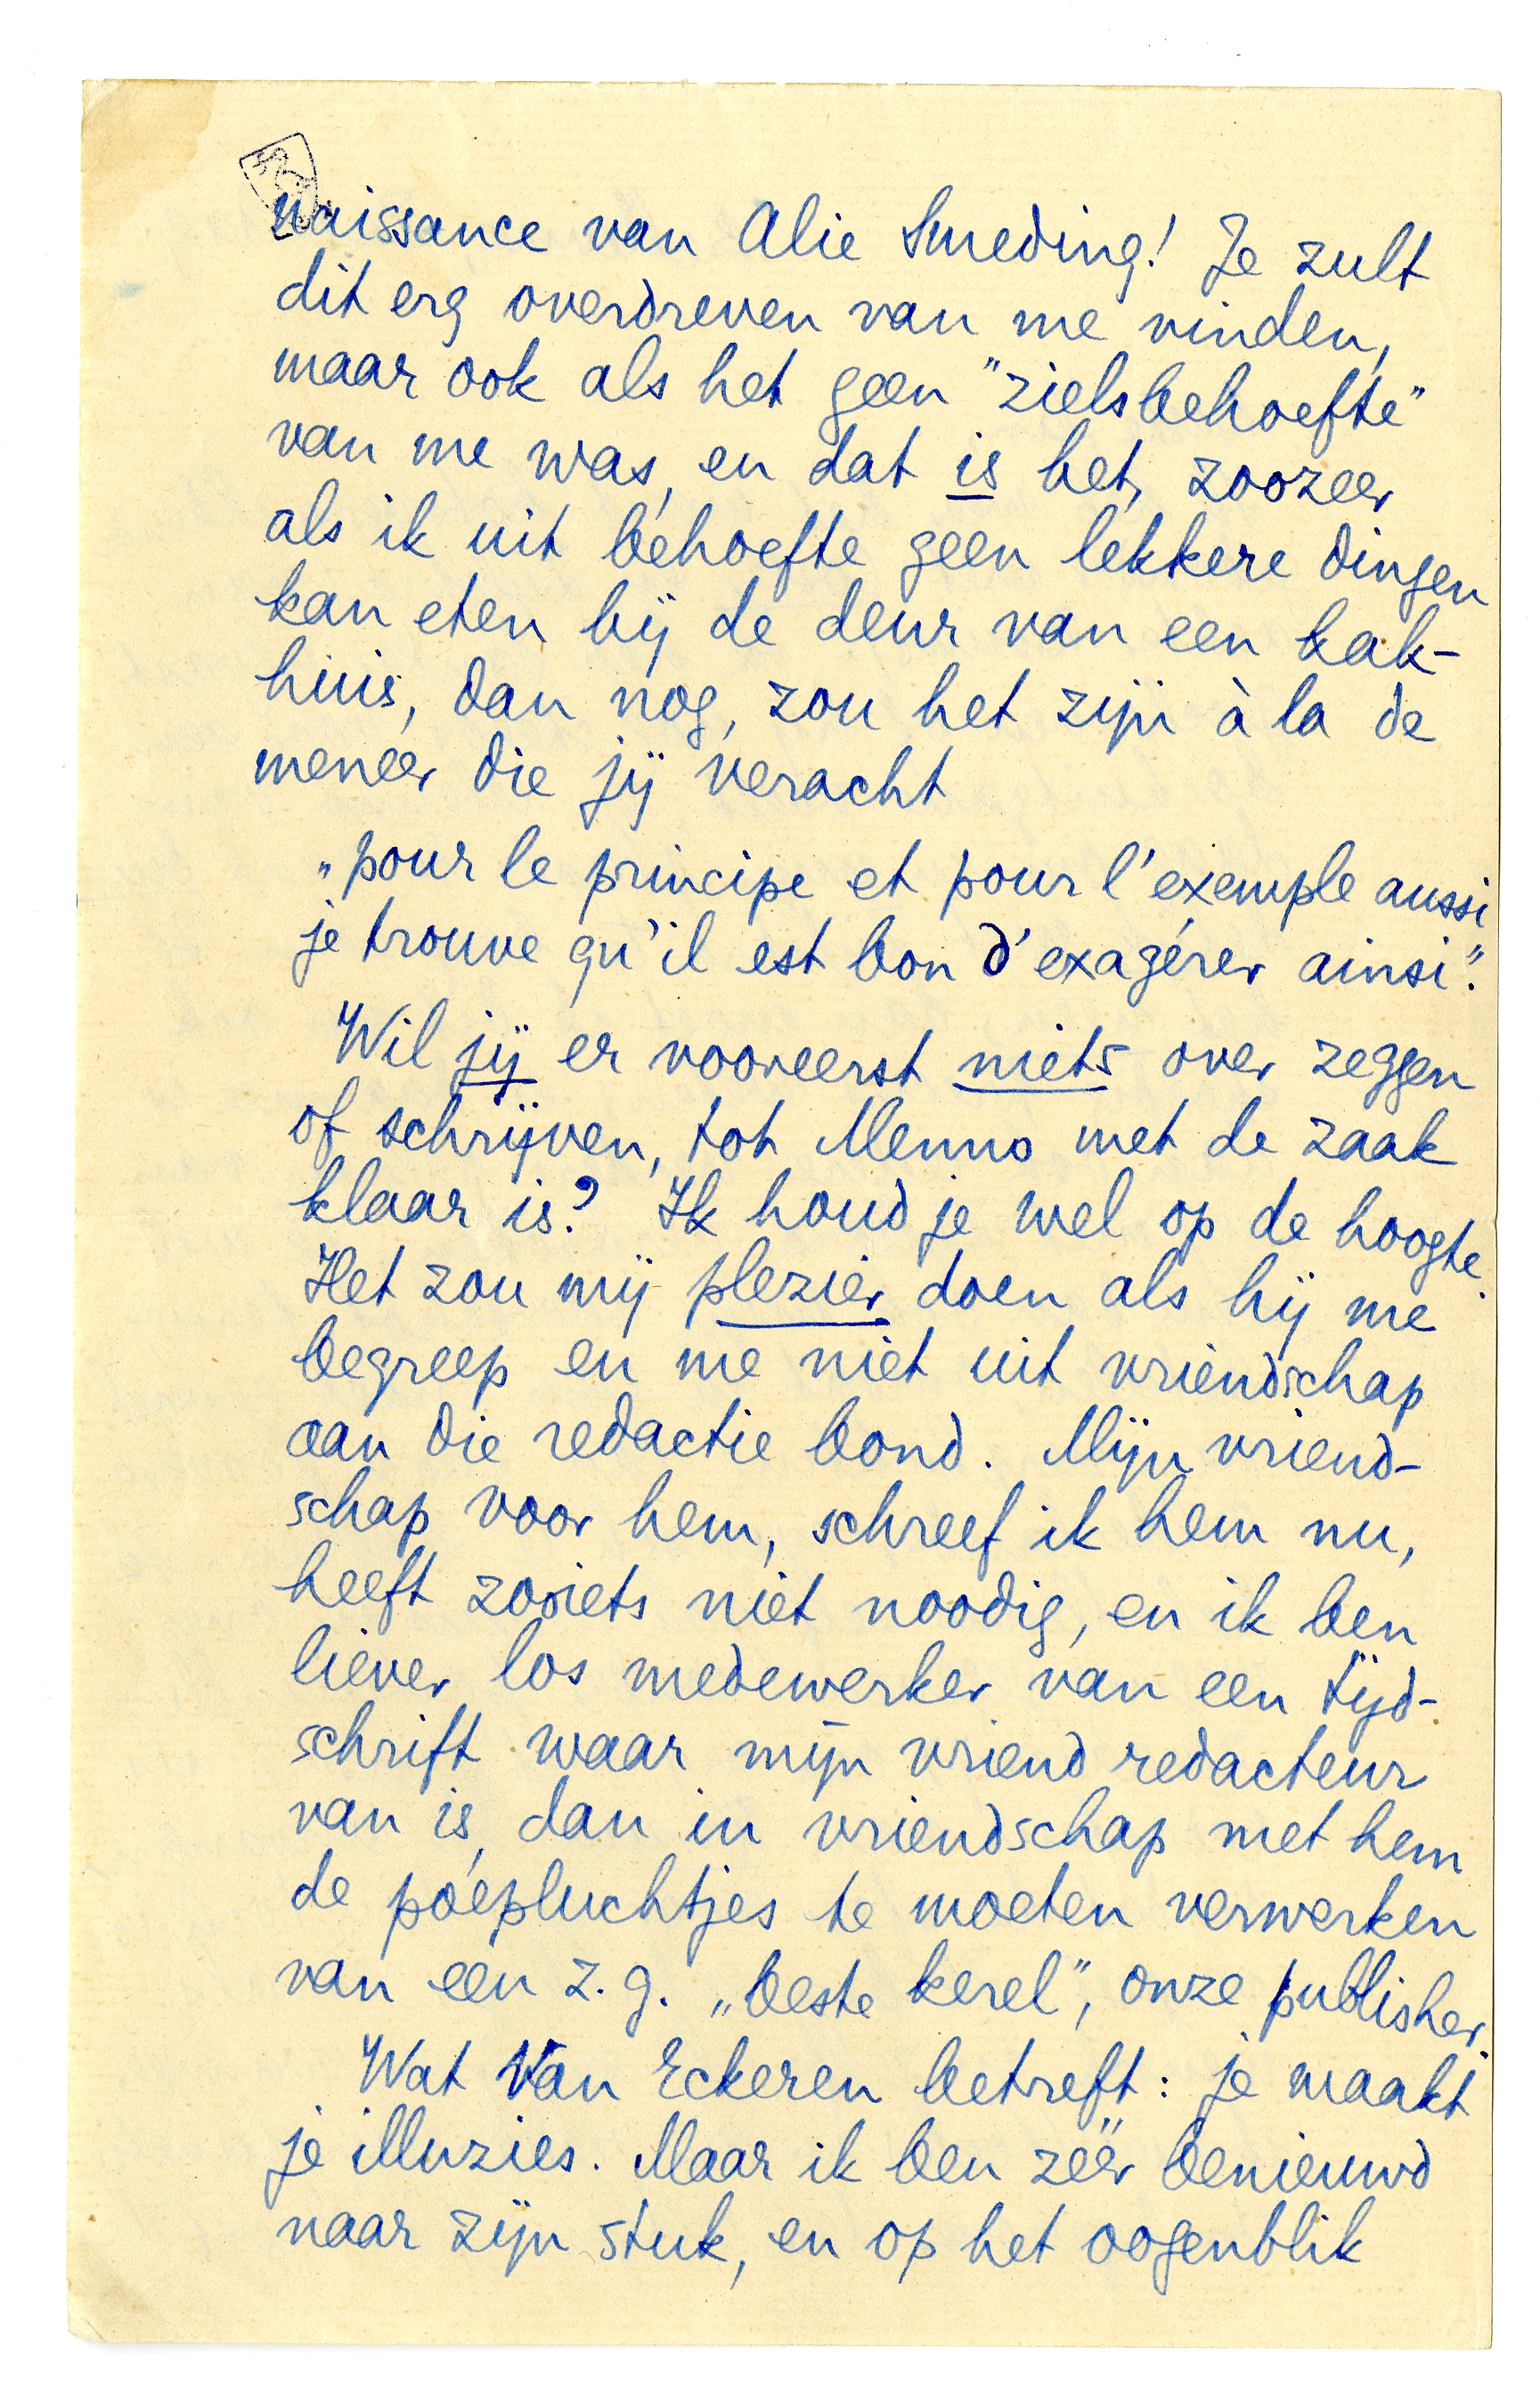 naissance van Alie Smeding! Je zult
dit erg overdreven van me vinden,
maar ook als het geen "zielsbehoefte"
van me was, en dat is het, zoozeer
als ik uit behoefte geen lekkere dingen
kan eten bij de deur van een kak-
huis, dan nog, zou het zijn à la de
meneer die jij veracht
„pour le principe et pour l'exemple aussi
je trouve qu'il est bon d'exagérer ainsi".
Wil jij er vooreerst niets over zeggen
of schrijven, tot Menno met de zaak
klaar is? Ik houd je wel op de hoogte.
Het zou mij plezier doen als hij me
begreep en me niet uit vriendschap
aan die redactie bond. Mijn vriend-
schap voor hem, schreef ik hem nu,
heeft zooiets niet noodig, en ik ben
liever los medewerker van een tijd-
schrift waar mijn vriend redacteur
van is, dan in vriendschap met hem
de poepluchtjes te moeten verwerken
van een z.g. „beste kerel", onze publisher.
Wat Van Eckeren betreft: je maakt
je illuzies. Maar ik ben zéér benieuwd
naar zijn stuk, en op het oogenblik